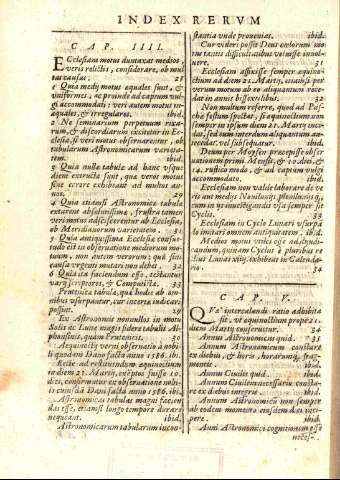 INDEX RERVM
CAP. IIII.
Ecclesiam motus duntaxat medios,
veris relictis, considerare, ob mul
tas causas. 28
Quia medij motus equales sunt, &
uniformes, ac proinde ad captum vul
gi accommodati: veri autem motus in-
æquales, & irregulares. ibid.
2 Ne seminarium perpetuum rixa-
rum, & discordiarum excitetur in Ec-
clesia, si veri motus observarentur, ob
tabularum Astronomicarum varieta
tem. ibid.
3 Quia nulla tabulæ ad hanc vsque
diem exacta sunt, qua veros motus
sine errore exhibeant ad multos an-
nos. 29
4 Quia etiamsi Astronomica tabula
extarent absolutissima, frustra tamen
veri motus adsciscerentur ab Ecclesia,
ob Meridianorum varietatem. 31
5 Quia antiquissima Ecclesia consue-
tudo est in observatione mediorum mo-
tuum, non autem verorum; quæ sine
causa vrgenti mutari non debet. 32
6 Quia ita faciendum esse, testantur
varij scriptores, & Computista. 33
Prutenica tabula, qua hodie ab om-
nibus vsurpantur, cur incerta indicari
possint. 29
Ex Astronomis nonnullos in motu
Solis ac Luna magis fidere tabulis Al-
phonsinis, quam Prutenicis. 30
Aequinoctij verni observatio à nobi-
li quodam Dano facta anno 1586. ibi.
Recte ad restituendum equinoctium
in diem 21. Martij, exeptos fuisse 10.
dies, confirmatur ex observatione nobi-
lis cuiusdam Dani facta anno 1586. ibi.
Astronomicas tabulas magni facien
das esse, etiamsi longo tempore durare
nequeant. ibid.
Astronomicarum tabularum incon-
stantia vnde proveniat. ibid.
Cur videri possit Deus cælorum mo
tus tantis difficultatibus voluisse indu
uere. 31
Ecclesiam affixisse semper æquino-
ctium ad diem 21. Martij, etiamsi per
verum motum ab eo aliquantum rece-
dat in annis bissextilibus. 32
Non multum referre, quod ad Pas-
cha festum spectat, si æquinoctium non
semper in ipsum diem 21. Martij inci-
dat, sed cum interdum aliquantum an-
tecedat, vel subsequatur. ibid.
Deum per Mosen præcepisse obser
uationem primi Mensis, & 10. diei, &
14. rustico modo, & ad captum vulgi
accommodato. ibid.
Ecclesiam non valde laborare de ve
ris aut medijs Novilunijs, plenilunijsq;
cum in vtrisque vsa semper sit
Cyclis. 33
Ecclesiam in Cyclo Lunari vsurpa
to imitari omnem antiquitatem. ibid.
Medios motus viles esse ad indi-
candum, quonam Cyclus à pluribus re
ctius Lunas xiiij. exhibeat in Calenda-
rio. 34
CAP. V.
Quæ intercalandi ratio adhibita
sit, vt æquinoctium prope 21.
diem Martij conseruetur. 34
Annus Astronomicus quid. 35
Annum Astronomicum constare
ex diebus, & horis, horarumq; frag-
mentis. ibid.
Annus Ciuilis quid. ibid.
Annum Ciuilem necessario consta-
re ex diebus integris ibid.
Annum Astronomicum non semper
ab eodem momento eiusdem diei inci-
pere. ibid.
Anni Astronomici cognitionem esse
neces-